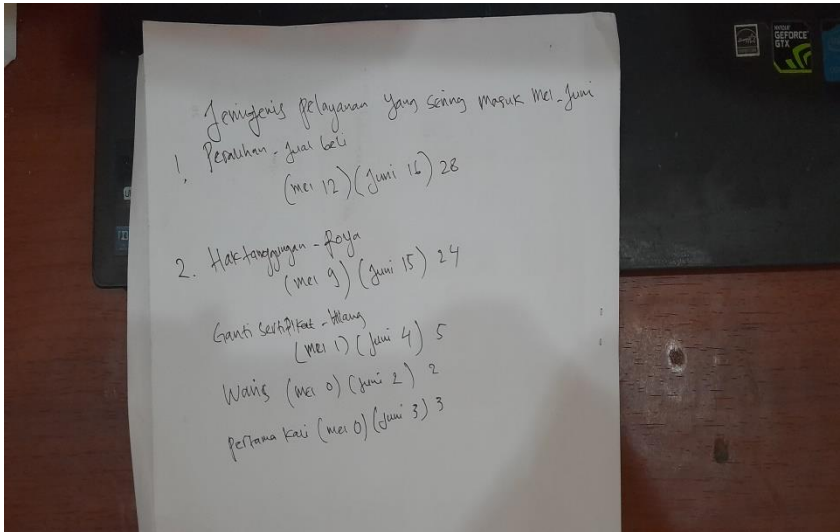 Jenisjenis pelayanan yang sering masuk Mei - Juni
1. Peralihan - Jual beli
(Mei 12) (Juni 16) 28
2. Hak tanggungan - Roya
(Mei 9) (Juni 15) 24
Ganti sertifikat - hilang
(Mei 1) (Juni 4) 5
Waris (Mei 0) (Juni 2) 2
pertama kali (Mei 0) (Juni 3) 3
GEFORCE
GTX